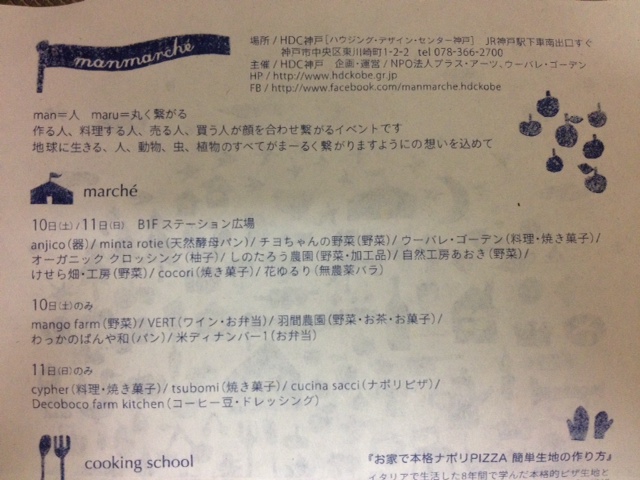 manmarché
場所 / HDC神戸［ハウジング・デザイン・センター神戸］ JR神戸駅下車南出口すぐ
神戸市中央区東川崎町1-2-2 tel 078-366-2700
主催 / HDC神戸 企画・運営 / NPO法人プラス・アーツ、ウーバレ・ゴーデン
HP / http://www.hdckobe.gr.jp
FB / http://www.facebook.com/manmarche.hdckobe
man＝人 maru＝丸く繋がる
作る人、料理する人、売る人、買う人が顔を合わせ繋がるイベントです
地球に生きる、人、動物、虫、植物のすべてがまーるく繋がりますようにの想いを込めて
marché
10日(土) / 11日(日) B1F ステーション広場
anjico（器）/ minta rotie（天然酵母パン）/ チヨちゃんの野菜（野菜）/ ウーバレ・ゴーデン（料理・焼き菓子）/
オーガニック クロッシング（柚子）/ しのたろう農園（野菜・加工品）/ 自然工房あおき（野菜）/
けせら畑・工房（野菜）/ cocori（焼き菓子）/ 花ゆるり（無農薬バラ）
10日(土)のみ
mango farm（野菜）/ VERT（ワイン・お弁当）/ 羽間農園（野菜・お茶・お菓子）/
わっかのぱんや和（パン）/ 米ディナンバー1（お弁当）
11日(日)のみ
cypher（料理・焼き菓子）/ tsubomi（焼き菓子）/ cucina sacci（ナポリピザ）/
Decoboco farm kitchen（コーヒー豆・ドレッシング）
cooking school
『お家で本格ナポリPIZZA 簡単生地の作り方』
イタリアで生活した8年間で学んだ本格的ピザ生地と